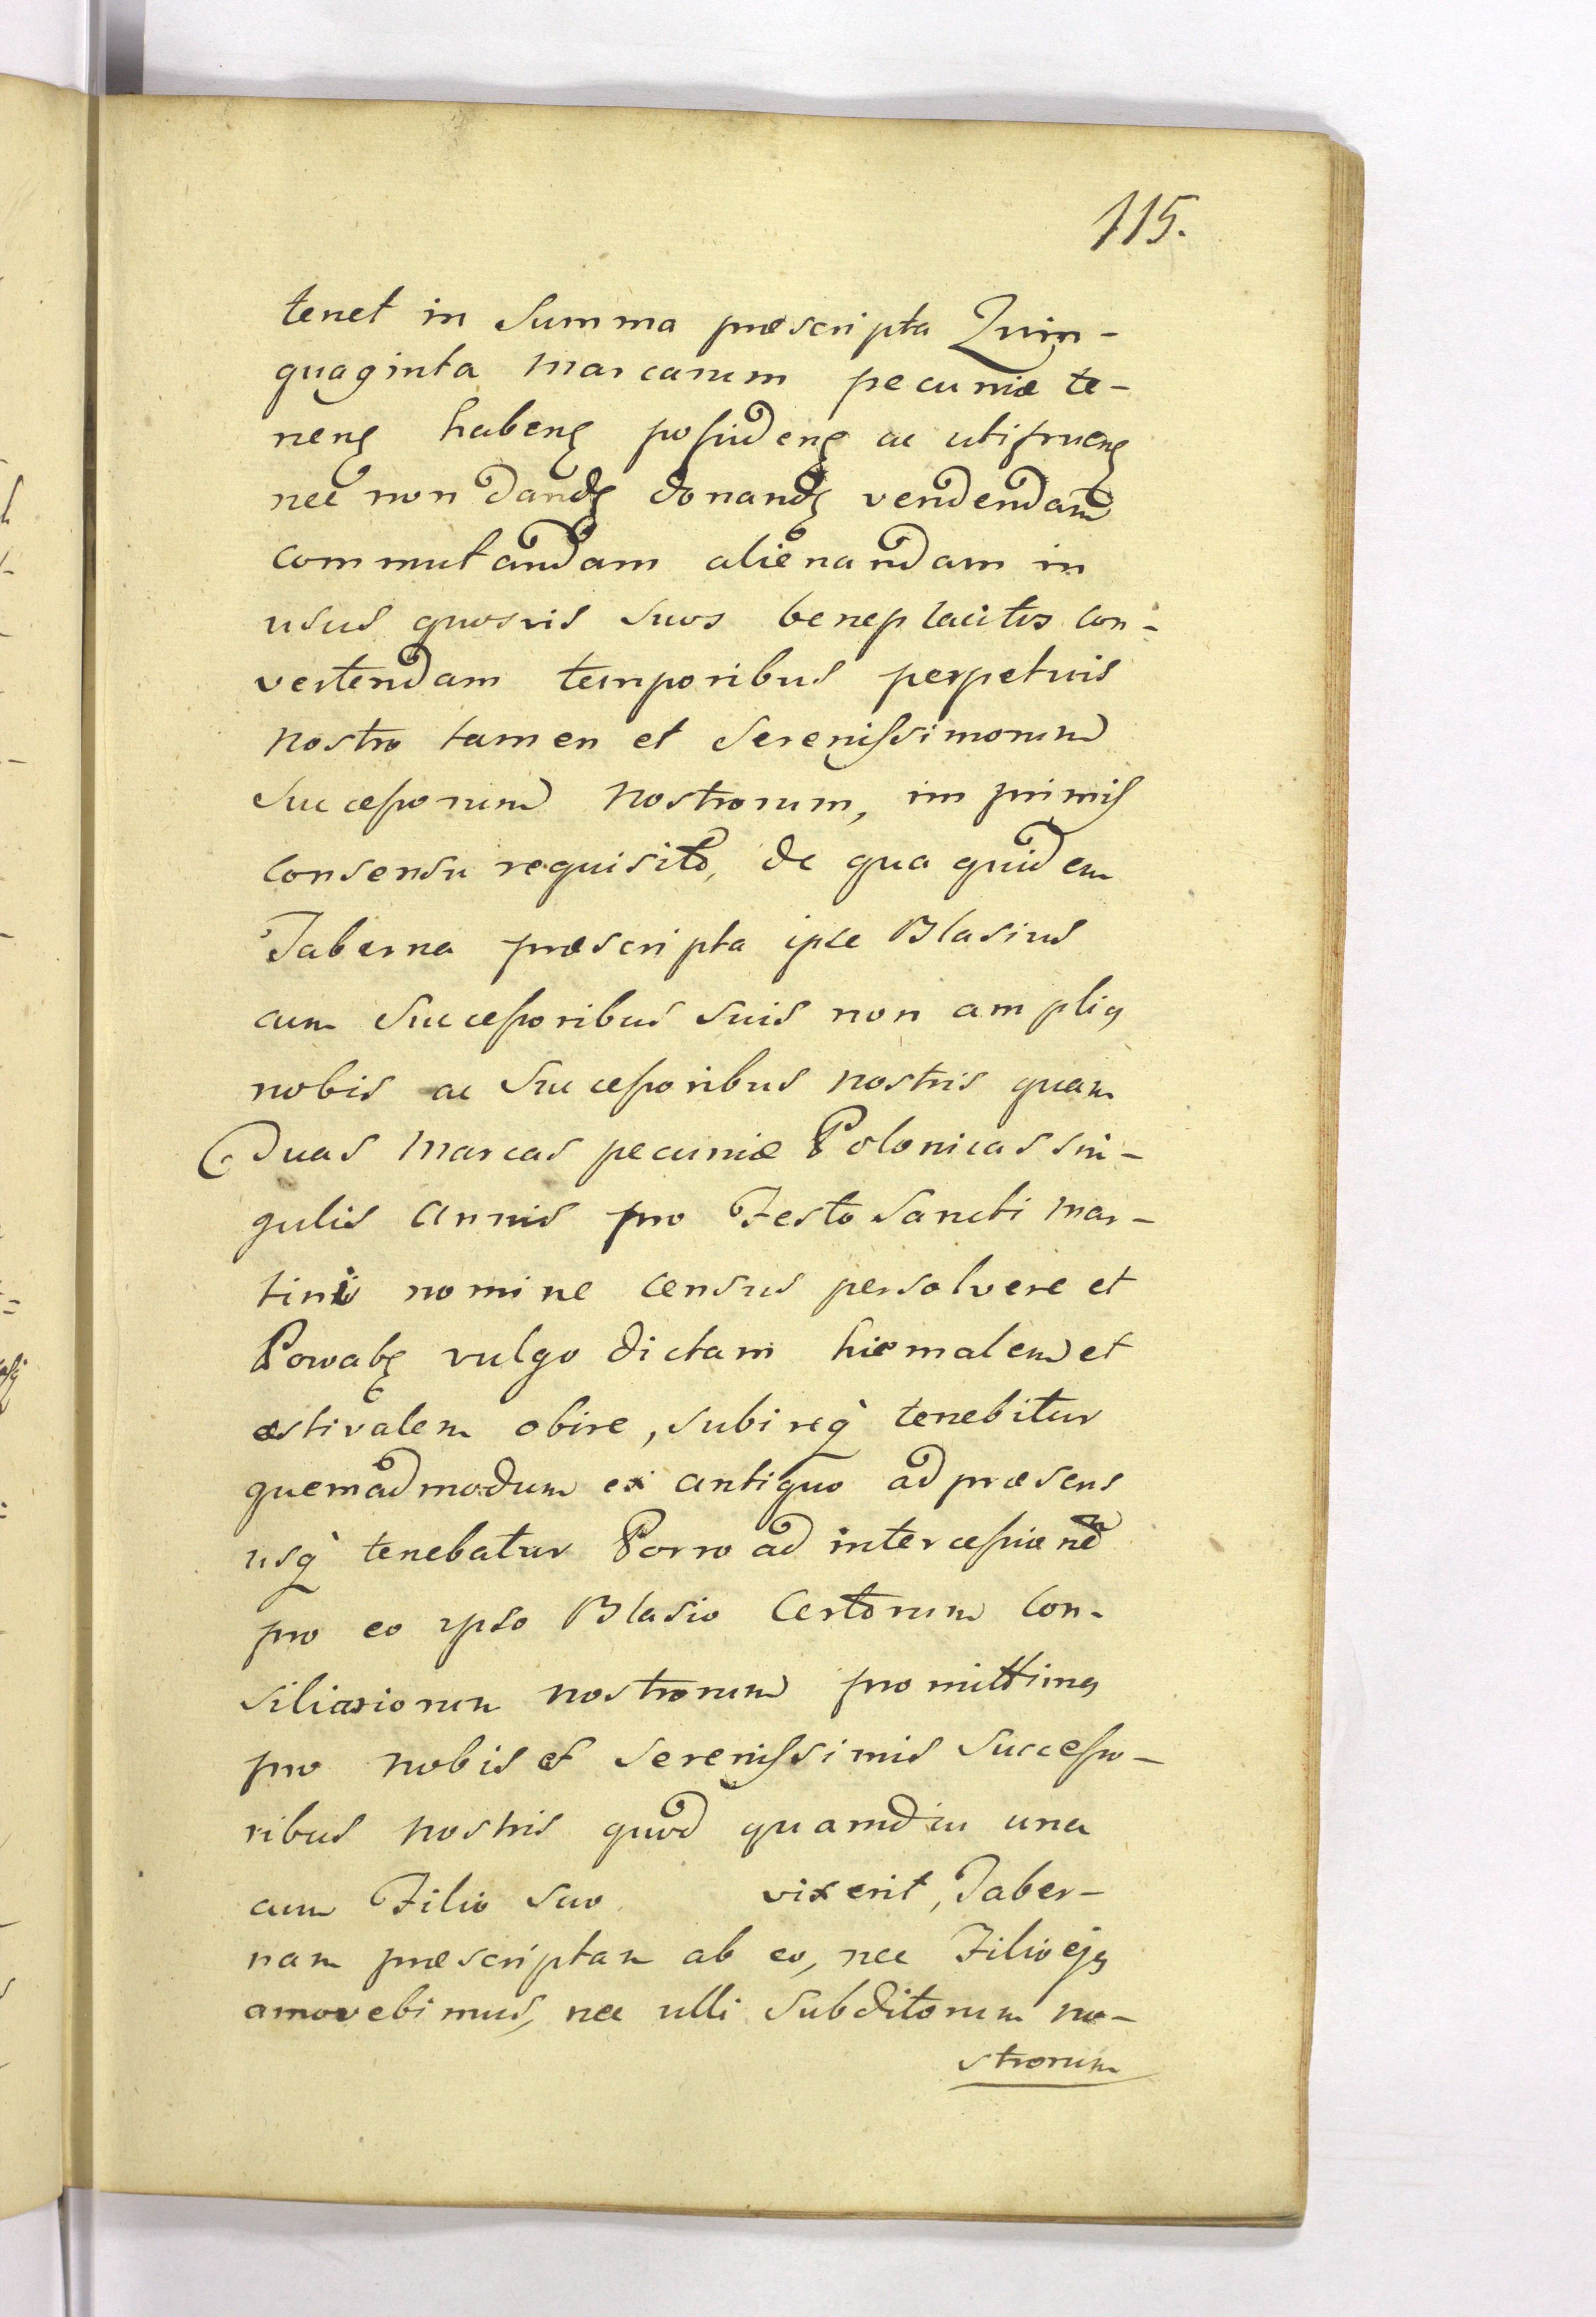 115.
tenet in Summa præscripta Quin-
quaginta Marcarum pecuniæ te-
nenꝫ habenꝫ possidenꝫ ac utifruenꝫ
nec non dandꝫ donandꝫ vendendam
commutandam alienandam in
usus quosvis suos beneplacitos con-
vertendam temporibus perpetuis
nostro tamen et Serenissimorum
Successorum Nostrorum, imprimis
consensu requisito, de qua quidem
Taberna præscripta ipse Blasius
cum Successoribus suis non ampliꝯ
nobis ac Successoribus nostris quam
Duas Marcas pecuniæ Polonicas sin-
gulis Annis pro Festo Sancti Mar-
tini nomine census persolvere et
Powabꝫ vulgo dictam hiemalem et
æstivalem obire, subireq̀ tenebitur
quemadmodum ex antiquo ad præsens
usq̀ tenebatur Porro ad intercessionem
pro eo ipso Blasio Certorum Con-
siliariorum nostrorum promittimꝯ
pro nobis et Serenissimis Successo-
ribus nostris quod quamdiu una
cum Filio suo vixerit, Taber-
nam præscriptam ab eo, nec Filio ejꝯ
amovebimus, nec ulli Subditorum no-
strorum